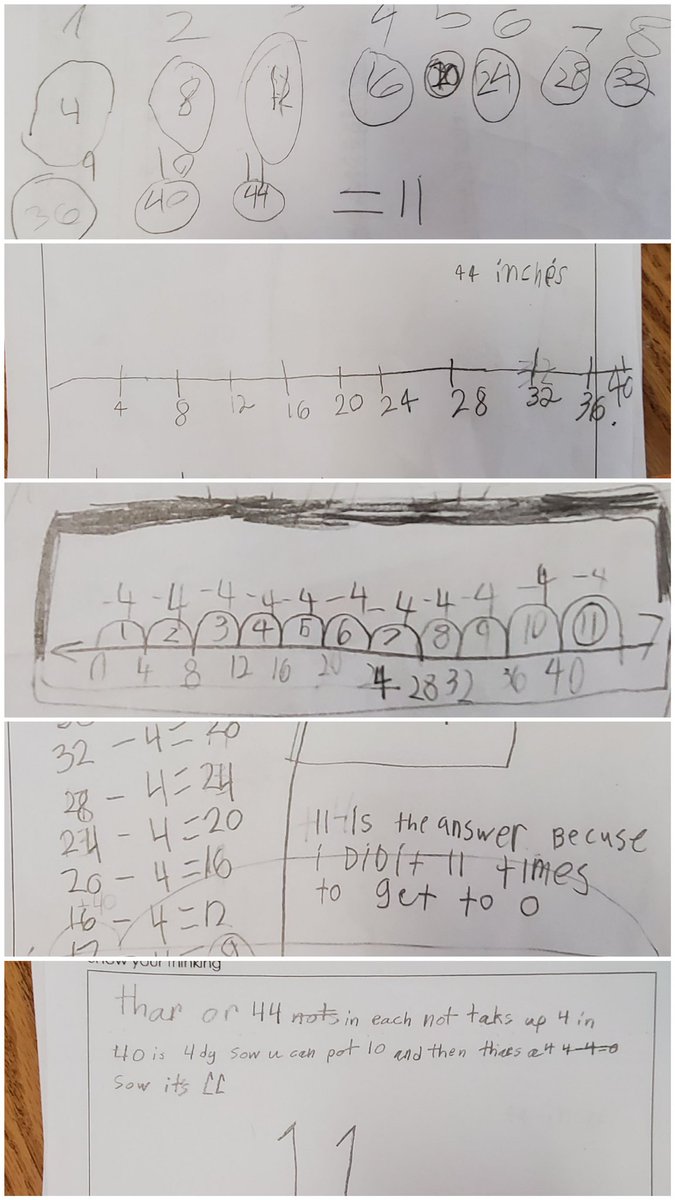 1 2 4 5 6 7 8
4 8 12 16 20 24 28 32
9 10 11
36 40 44 = 11
44 inches
4 8 12 16 20 24 28 32 36 40
-4 -4 -4 -4 -4 -4 -4 -4 -4 -4 -4
1 2 3 4 5 6 7 8 9 10 11
0 4 8 12 16 20 24 28 32 36 40
32 - 4 = 
28 - 4 = 24
24 - 4 = 20
20 - 4 = 16
16 - 4 = 12
11 Is the answer Becuse
i DiDit 11 times
to get to 0
Show your thinking
thar or 44 nots in each not taks up 4 in
40 is 4 dy sow u can pot 10 and then thars a 4 4-4=0
Sow its 11
11